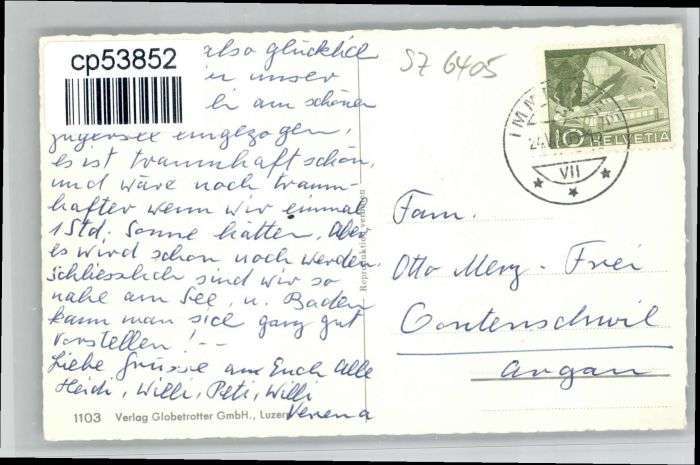 cp53852
also glücklich
unser
am schönen
Zugersee eingezogen,
es ist traumhaft schön,
und wäre noch traum-
hafter wenn wir einmal
1 Std. Sonne hätten. Aber
es wird schon noch werden.
Schliesslich sind wir so
nahe am See, u. Baden
kann man sich ganz gut
vorstellen! --
Liebe Grüsse an Euch Alle
Heidi, Willi, Peti, Willi
Verena
1103 Verlag Globetrotter GmbH., Luzern
Reproduktion verboten
SZ 6405
IMM
VII
10
HELVETIA
Fam.
Otto Merz-Frei
Gontenschwil
Aargau